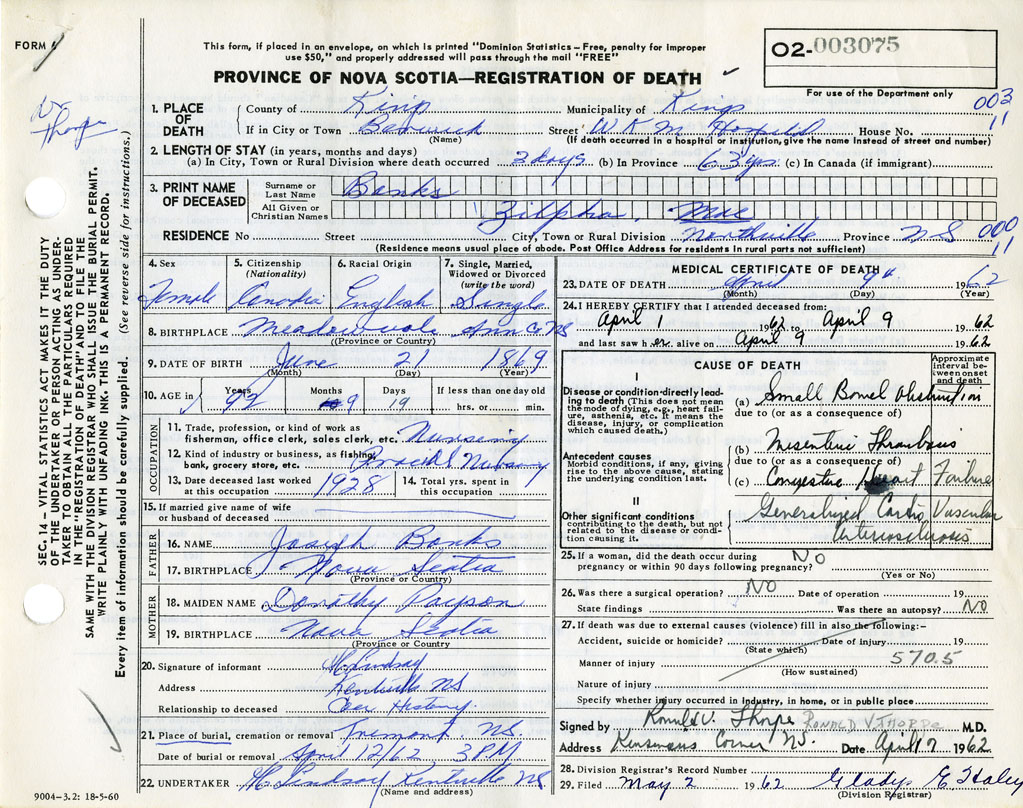 FORM
This form, if placed in an envelope, on which is printed "Dominion Statistics—Free, penalty for improper
use $50," and properly addressed will pass through the mail "FREE"
PROVINCE OF NOVA SCOTIA—REGISTRATION OF DEATH
02-003075
For use of the Department only
003
11
Thorpe
SEC. 14 – VITAL STATISTICS ACT MAKES IT THE DUTY
OF THE UNDERTAKER OR PERSON ACTING AS UNDER-
TAKER TO OBTAIN ALL THE PARTICULARS REQUIRED
IN THE "REGISTRATION OF DEATH" AND TO FILE THE
SAME WITH THE DIVISION REGISTRAR WHO SHALL ISSUE THE BURIAL PERMIT.
WRITE PLAINLY WITH UNFADING INK. THIS IS A PERMANENT RECORD.
Every item of information should be carefully supplied. (See reverse side for instructions.)
1. PLACE OF DEATH
County of Kings Municipality of Kings
If in City or Town Berwick Street W K M Hospital House No.
(Name) (If death occurred in a hospital or institution, give the name instead of street and number)
2. LENGTH OF STAY (in years, months and days)
(a) In City, Town or Rural Division where death occurred 3 days (b) In Province 63 yrs (c) In Canada (if immigrant)
3. PRINT NAME OF DECEASED
Surname or Last Name Banks
All Given or Christian Names Zilpha Mae
RESIDENCE No Street City, Town or Rural Division Northville Province NS
000
11
(Residence means usual place of abode. Post Office Address for residents in rural parts not sufficient)
4. Sex Female
5. Citizenship (Nationality) Canadia
6. Racial Origin English
7. Single, Married, Widowed or Divorced (write the word) Single
8. BIRTHPLACE Meadowvale Ann Co NS
(Province or Country)
9. DATE OF BIRTH June 21 1869
(Month) (Day) (Year)
10. AGE in Years 92 Months 9 Days 19 If less than one day old hrs. or min.
OCCUPATION
11. Trade, profession, or kind of work as fisherman, office clerk, sales clerk, etc. Nursing
12. Kind of industry or business, as fishing, bank, grocery store, etc. Practical Nursing
13. Date deceased last worked at this occupation 1928
14. Total yrs. spent in this occupation
15. If married give name of wife or husband of deceased
FATHER
16. NAME Joseph Banks
17. BIRTHPLACE Nova Scotia
(Province or Country)
MOTHER
18. MAIDEN NAME Dorothy Payson
19. BIRTHPLACE Nova Scotia
(Province or Country)
20. Signature of informant Lindsay
Address Kentville NS
Relationship to deceased Case History
21. Place of burial, cremation or removal Tremont NS.
Date of burial or removal April 12/62 3 PM
22. UNDERTAKER Lindsay Kentville NS
(Name and address)
9004-3.2: 18-5-60
MEDICAL CERTIFICATE OF DEATH
23. DATE OF DEATH April 9th 1962
(Month) (Day) (Year)
24. I HEREBY CERTIFY that I attended deceased from:
April 1 1962 to April 9 1962
and last saw her alive on April 9 1962
CAUSE OF DEATH
Approximate interval between onset and death
I
Disease or condition directly leading to death (This does not mean the mode of dying, e.g., heart failure, asthenia, etc. It means the disease, injury, or complication which caused death.)
(a) Small Bowel Obstruction
due to (or as a consequence of)
Antecedent causes
Morbid conditions, if any, giving rise to the above cause, stating the underlying condition last.
(b) Mesenteric Thrombosis
due to (or as a consequence of)
(c) Congestive Heart Failure
II
Other significant conditions
contributing to the death, but not related to the disease or condition causing it.
Generalized Cardio Vascular
Arteriosclerosis
25. If a woman, did the death occur during pregnancy or within 90 days following pregnancy? NO
(Yes or No)
26. Was there a surgical operation? NO Date of operation 19
State findings Was there an autopsy? NO
27. If death was due to external causes (violence) fill in also the following:—
Accident, suicide or homicide? Date of injury 19
(State which)
Manner of injury 570.5
(How sustained)
Nature of injury
Specify whether injury occurred in industry, in home, or in public place
Signed by Ronald V. Thorpe RONALD V THORPE M.D.
Address Corner NS. Date April 17 1962
28. Division Registrar's Record Number
29. Filed May 2 1962 Gladys E Haley
(Division Registrar)